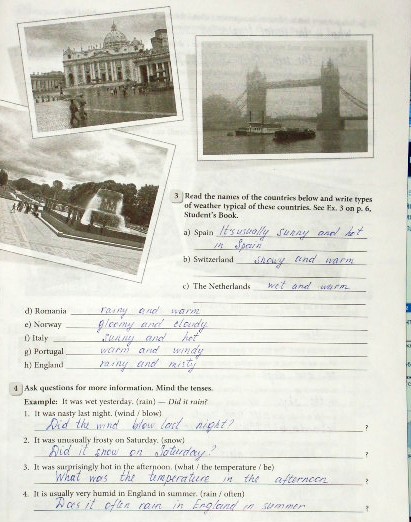 3 Read the names of the countries below and write types
of weather typical of these countries. See Ex. 3 on p. 6,
Student's Book.
a) Spain It's usually sunny and hot
in Spain
b) Switzerland snowy and warm
c) The Netherlands wet and warm
d) Romania rainy and warm
e) Norway gloomy and cloudy
f) Italy sunny and hot
g) Portugal warm and windy
h) England rainy and misty
4 Ask questions for more information. Mind the tenses.
Example: It was wet yesterday. (rain) — Did it rain?
1. It was nasty last night. (wind / blow)
Did the wind blow last night? ?
2. It was unusually frosty on Saturday. (snow)
Did it snow on Saturday? ?
3. It was surprisingly hot in the afternoon. (what / the temperature / be)
What was the temperature in the afternoon ?
4. It is usually very humid in England in summer. (rain / often)
Does it often rain in England in summer ?